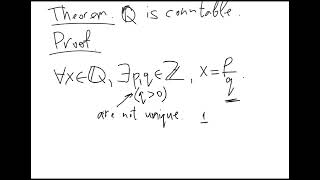 Theorem. ℚ is countable.
Proof
∀x∈ℚ, ∃p,q∈ℤ, x=p/q.
(q>0)
are not unique. 1